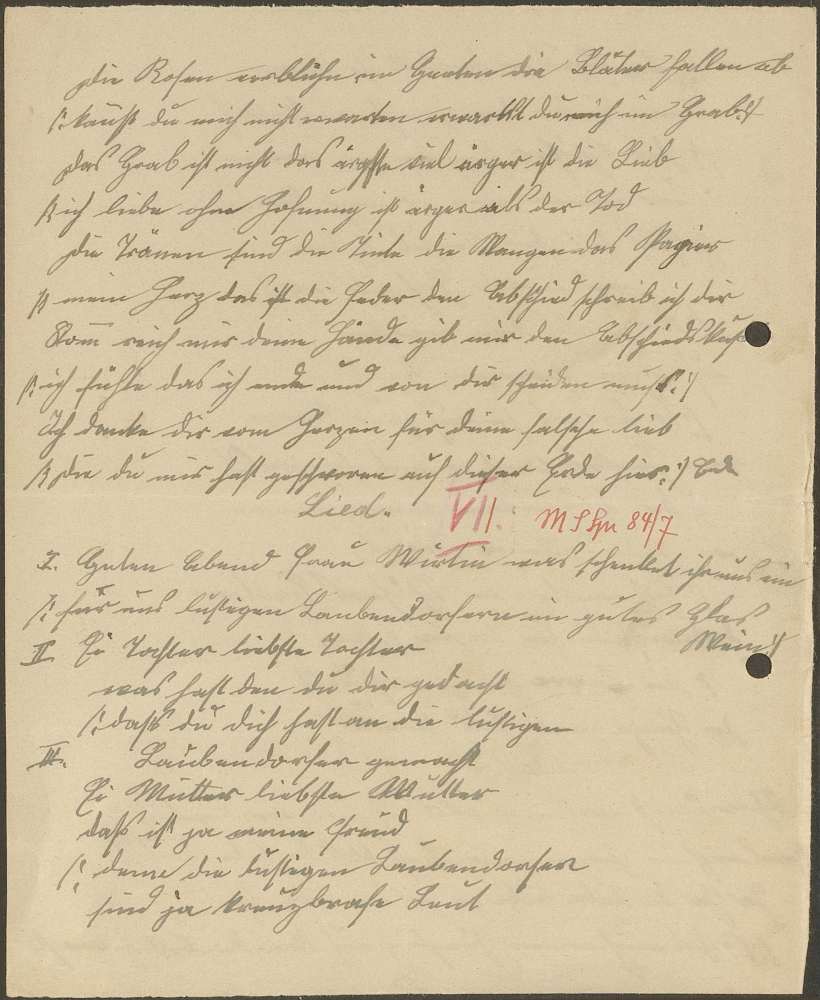 Die Rosen verblühn im Garten die Bläter fallen ab
|: kanst du mich nicht erwarten erwarttet du mich im Grab :|
Das Grab ist nicht das ärgste viel ärger ist die Lieb
|: ich liebe ohne Hofnung ist ärger als der Tod
Die Tränen sind die Tinte die Wangen das Papier
|: mein Herz das ist die Feder den Abschied schreib ich dir
Kom reich mir deine Hände gib mir den Abschiedskuß
|: ich fühle das ich ende und von dir scheiden muß :|
Ich danke dir vom Herzen für deine falsche lieb
|: Die du mir hast geschworen auf dieser Erde hier. :|
Lied. VII. M S Hn 84/7
I. Guten Abend Frau Wirtin was schenket ihr uns ein
|: für uns lustigen Laubendorfern ein gutes Glas
Wein :|
II Ei Tochter liebste Tochter
was hast den du dir gedacht
|: daß du dich hast an die lustigen
Laubendorfer gemacht
III. Ei Mutter liebste Mutter
daß ist ja meine Freud
|: denn die lustigen Laubendorfer
sind ja kreuzbrafe Leut